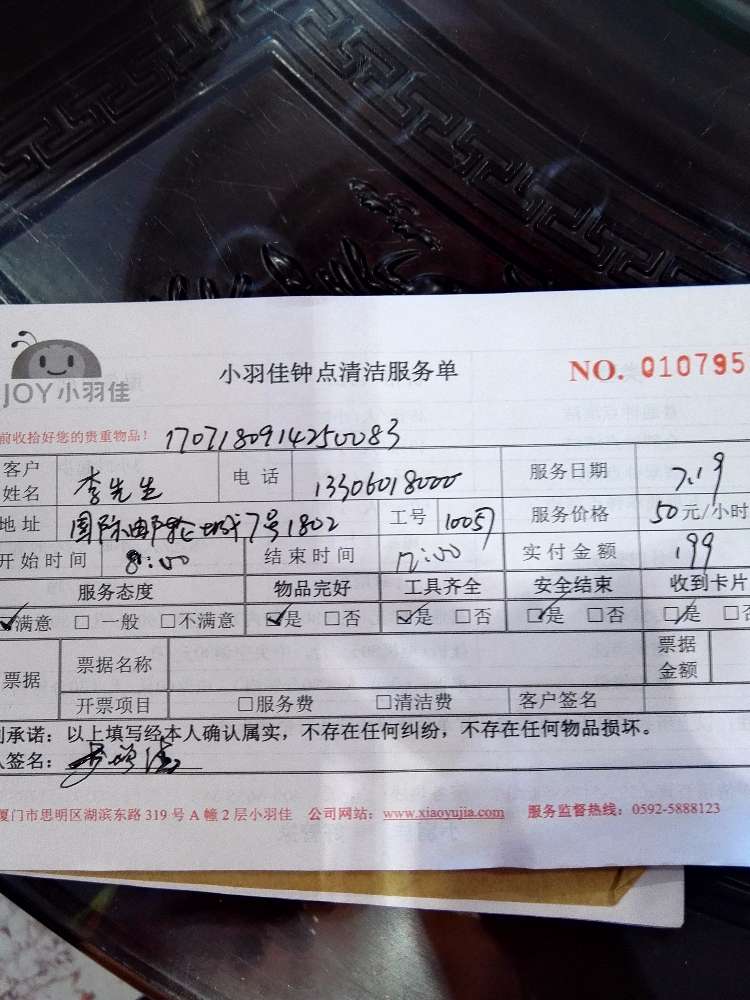 JOY小羽佳
小羽佳钟点清洁服务单
NO. 010795
前收拾好您的贵重物品! 1707180914250083
客户姓名 李先生 电话 13306018000 服务日期 7.19
地址 国际邮轮城7号1802 工号 服务价格 50元/小时
开始时间 8:00 结束时间 12:00 实付金额 199
服务态度 物品完好 工具齐全 安全结束 收到卡片
☑满意 □一般 □不满意 ☑是 □否 ☑是 □否 ☑是 □否 ☑是 □否
票据 票据名称 票据金额
开票项目 □服务费 □清洁费 客户签名
承诺:以上填写经本人确认属实,不存在任何纠纷,不存在任何物品损坏。
签名:
厦门市思明区湖滨东路319号A幢2层小羽佳 公司网站:www.xiaoyujia.com 服务监督热线:0592-5888123